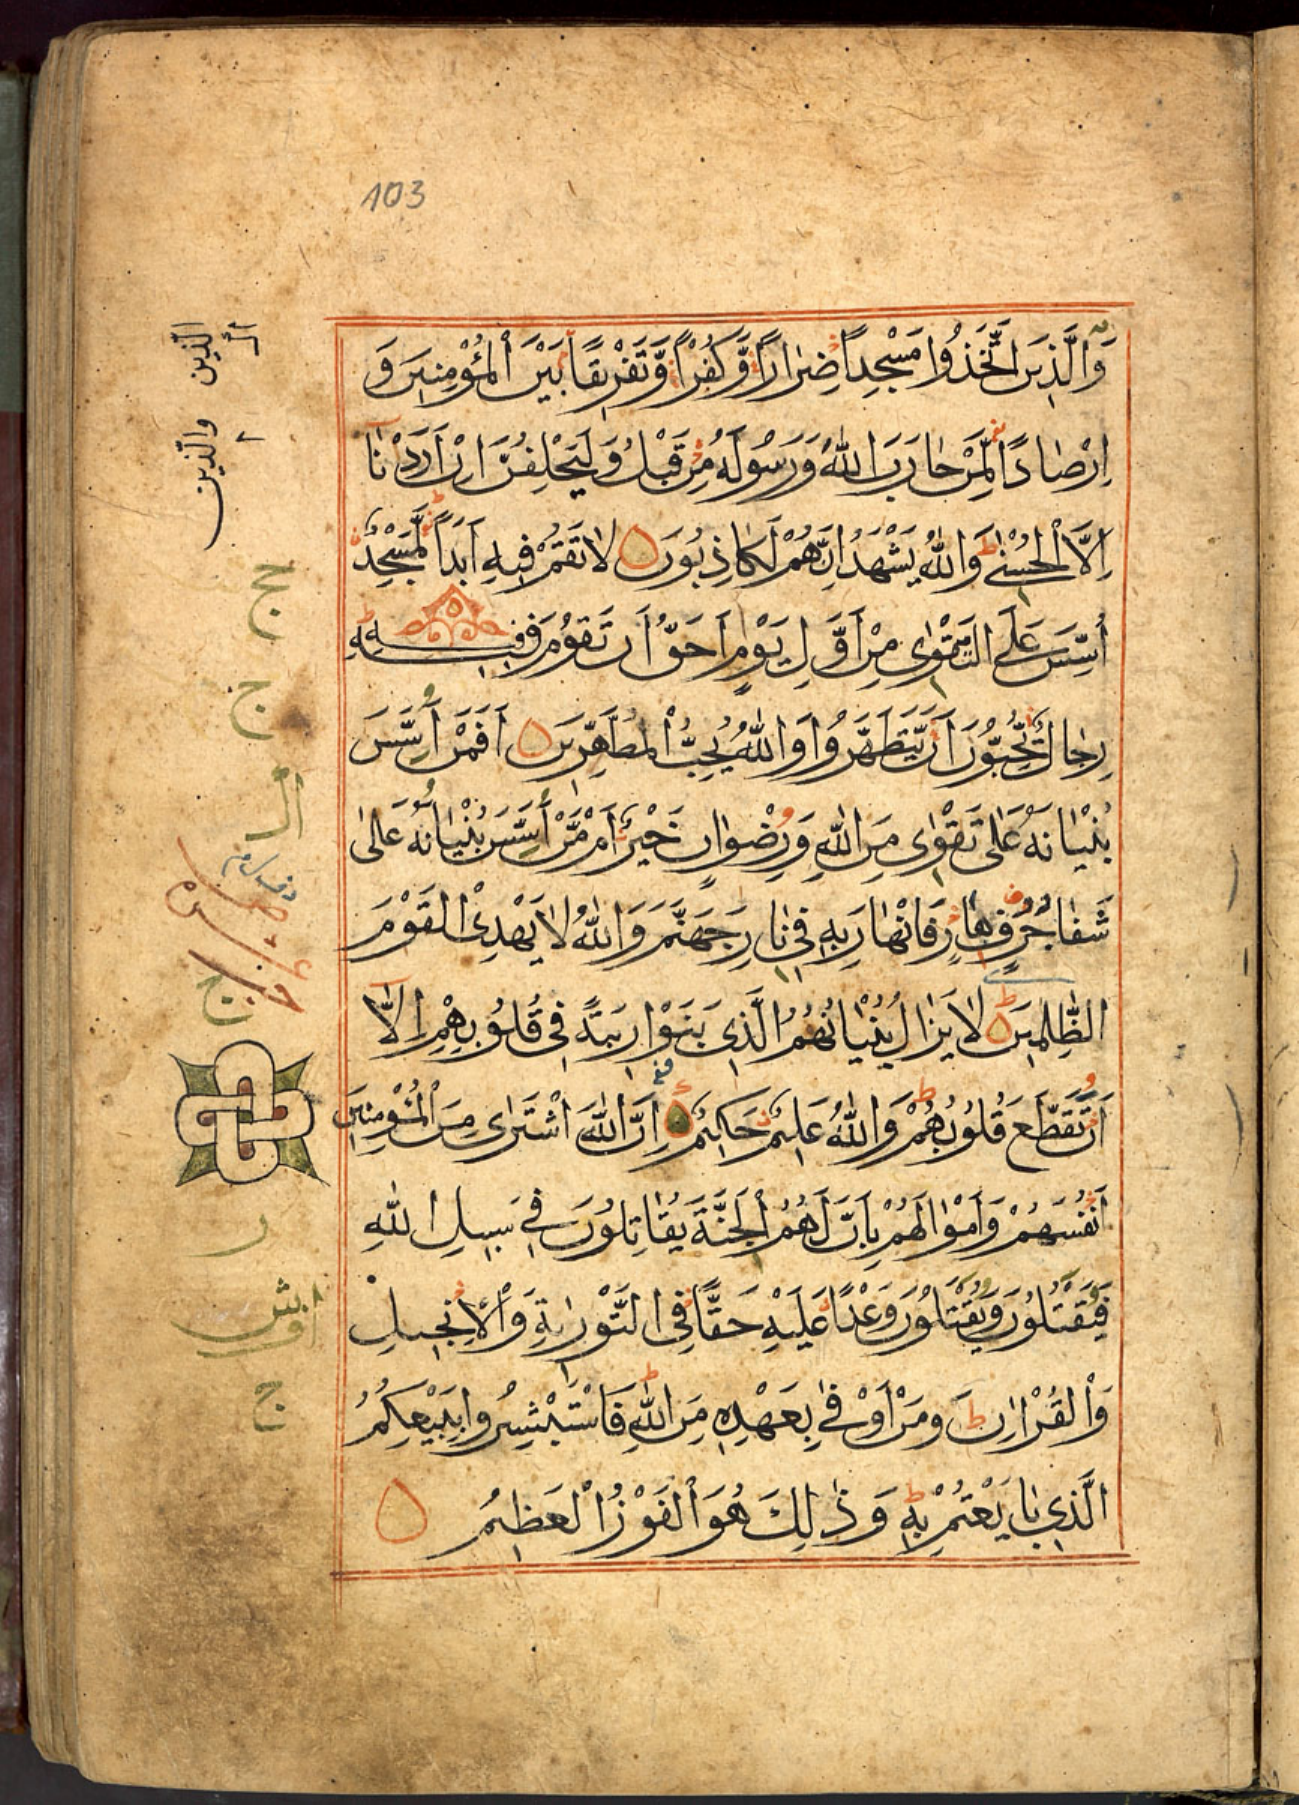 103
وَالَّذِينَ اتَّخَذُوا مَسْجِداً ضِرٰاراً وَّكُفْراً وَّتَفْرِيقاً بَيْنَ الْمُؤْمِنِينَ وَ
اِرْصٰاداً لِّمَنْ حٰارَبَ اللّٰهَ وَرَسُولَهُ مِنْ قَبْلُ وَلَيَحْلِفُنَّ اِنْ اَرَدْنٰا
اِلَّا الْحُسْنٰى وَاللّٰهُ يَشْهَدُ اِنَّهُمْ لَكَاذِبُونَ لٰا تَقُمْ فِيهِ اَبَداً لَّمَسْجِدٌ
اُسِّسَ عَلَى التَّقْوٰى مِنْ اَوَّلِ يَوْمٍ اَحَقُّ اَنْ تَقُومَ فِيهِ فِيهِ
رِجٰالٌ يُّحِبُّونَ اَنْ يَّتَطَهَّرُوا وَاللّٰهُ يُحِبُّ الْمُطَّهِّرِينَ اَفَمَنْ اَسَّسَ
بُنْيٰانَهُ عَلٰى تَقْوٰى مِنَ اللّٰهِ وَرِضْوٰانٍ خَيْرٌ اَمْ مَّنْ اَسَّسَ بُنْيٰانَهُ عَلٰى
شَفٰا جُرُفٍ هٰارٍ فَانْهٰارَ بِهِ فِي نٰارِ جَهَنَّمَ وَاللّٰهُ لٰا يَهْدِي الْقَوْمَ
الظّٰالِمِينَ لٰا يَزٰالُ بُنْيٰانُهُمُ الَّذِي بَنَوْا رِيبَةً فِي قُلُوبِهِمْ اِلَّا
اَنْ تَقَطَّعَ قُلُوبُهُمْ وَاللّٰهُ عَلِيمٌ حَكِيمٌ اِنَّ اللّٰهَ اشْتَرٰى مِنَ الْمُؤْمِنِينَ
اَنْفُسَهُمْ وَاَمْوٰالَهُمْ بِاَنَّ لَهُمُ الْجَنَّةَ يُقٰاتِلُونَ فِي سَبِيلِ اللّٰهِ
فَيَقْتُلُونَ وَيُقْتَلُونَ وَعْداً عَلَيْهِ حَقّاً فِي التَّوْرٰيةِ وَالْاِنْجِيلِ
وَالْقُرْاٰنِ وَمَنْ اَوْفٰى بِعَهْدِهِ مِنَ اللّٰهِ فَاسْتَبْشِرُوا بِبَيْعِكُمُ
الَّذِي بٰايَعْتُمْ بِهِ وَذٰلِكَ هُوَ الْفَوْزُ الْعَظِيمُ
الّذين
والّذين